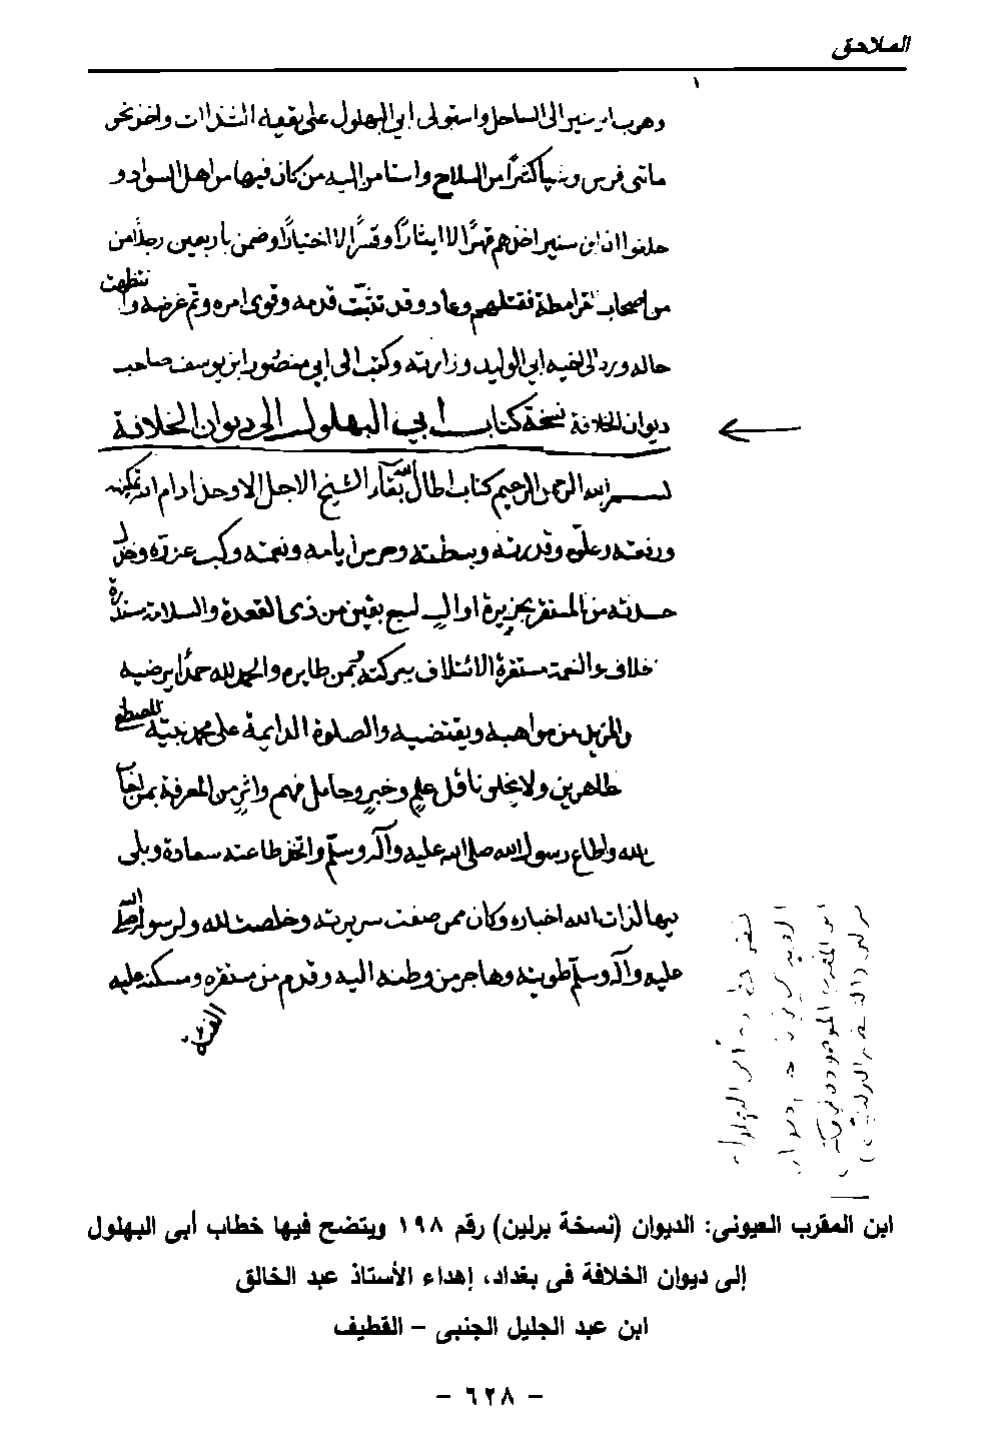 الملاحق
وهرب ابن سنبر الى الساحل واستولى ابي البهلول على بقية الشذاات واخذ نحو
مائتي فرس وشيا كثيرًا من السلاح واستامن اليه من كان فيها من اهل السواد و
حلفوا ان ابن سنبر اخذهم قهرًا لا ايثارًا وقسرًا لا اختيارًا وضمن باربعين رجلًا من
من اصحاب القرامطة فقتلهم وعاد وقد تثبّت قدمه وقوى امره وتم غرضه وانتظمت
حاله ورد الى اخيه ابي الوليد وزارته وكتب الى ابي منصور ابن يوسف صاحب
ديوان الخلافة نسخة كتاب أبي البهلول إلى ديوان الخلافة
بسم الله الرحمن الرحيم كتاب اطال الله بقآء الشيخ الاجل الاوحد ادام الله تمكينه
ورفعته وعلوّه وقدرته وبسطته وحرس ايامه ونعمته وكبت
من المستقر بجزيرة اوالٍ لسبع بقين من ذى القعدة والسلامة
خلاف والنعمة مستقرة الائتلاف ببركته ويمن طايره والحمد لله حمدًا يرضيه
والمزيد من مواهبه ويقتضيه والصلوة الدايمة على محمد نبيّه المصطفى
طاهرين ولا يخلى ناقل علمٍ وخبرٍ وحامل فهم واثرٍ من المعرفة بمن اجاب
لله واطاع رسول الله صلى الله عليه وآله وسلّم واتخذ طاعته سعادة وبلى
بها لذات الله اخباره وكان ممن صفت سريرته وخلصت لله ولرسوله صلى الله
عليه وآله وسلّم طويته وهاجر من وطنه اليه وقدم من مستقره ومسكنه عليه
الفتنة
ابن المقرب العيونى: الديوان (نسخة برلين) رقم ١٩٨ ويتضح فيها خطاب أبى البهلول
إلى ديوان الخلافة فى بغداد، إهداء الأستاذ عبد الخالق
ابن عبد الجليل الجنبى – القطيف
– ٦٢٨ –